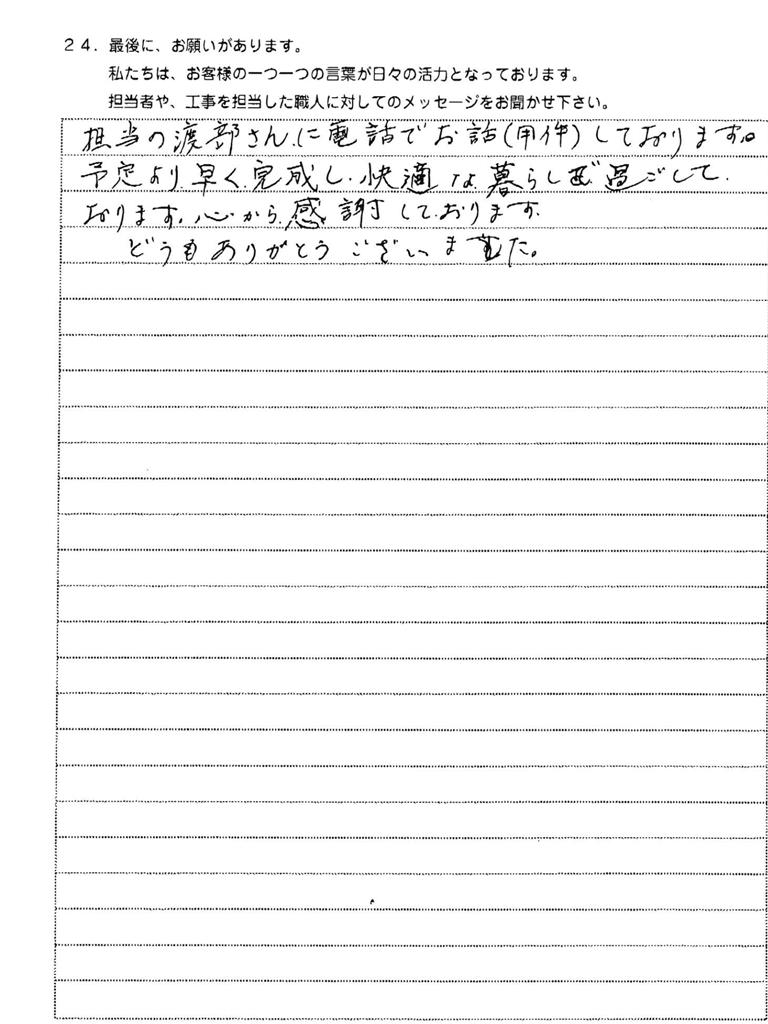 24. 最後に、お願いがあります。
私たちは、お客様の一つ一つの言葉が日々の活力となっております。
担当者や、工事を担当した職人に対してのメッセージをお聞かせ下さい。
担当の渡部さんに電話でお話(用件)しております。
予定より早く完成し、快適な暮らしで過ごして
おります。心から感謝しております。
どうもありがとうございました。